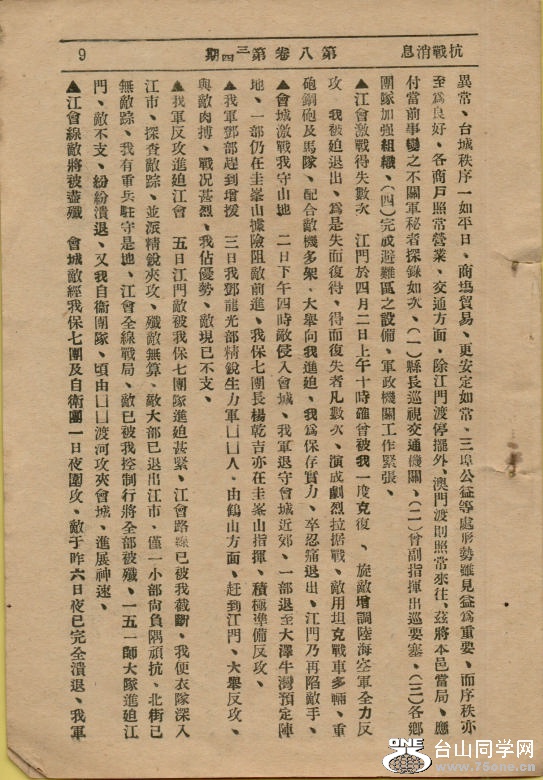 抗戰消息
第八卷第三四期
9
異常、台城秩序一如平日、商塲貿易、更安定如常、三埠公益等處形勢雖見益爲重要、而序秩亦
至爲良好、各商戸照常營業、交通方面、除江門渡停擺外、澳門渡則照常來往、茲將本邑當局、應
付當前事變之不關軍秘者探錄如次、(一)縣長巡視交通機關、(二)曾副指揮出巡要塞、(三)各鄉
團隊加强組織、(四)完成避難區之設備、軍政機關工作緊張、
▲江會激戰得失數次 江門於四月二日上午十時確曾被我一度克復、旋敵增調陸海空軍全力反
攻 我被迫退出、爲是失而復待、得而復失者凡數次、演成劇烈拉据戰、敵用坦克戰車多輛、重
砲鋼砲及馬隊、配合敵機多架、大舉向我進迫、我爲保存實力、卒忍痛退出、江門乃再陷敵手、
▲會城激戰我守山地 二日下午四時敵侵入會城、我軍退守會城近郊、一部退至大澤牛灣預定陣
地、一部仍在圭峯山據險阻敵前進、我保七團長楊乾吉亦在圭峯山指揮、積極準備反攻、
▲我軍鄧部趕到增援 三日我鄧龍光部精銳生力軍凵凵人、由鶴山方面、赶到江門、大舉反攻、
與敵肉搏、戰况甚烈、我佔優勢、敵現已不支、
▲我軍反攻進廹江會 五日江門敵被我保七團隊進廹甚緊、江會路綫已被我截斷、我便衣隊深入
江市、探查敵踪、並派精銳夾攻、殲敵無算、敵大部已退出江市、僅一小部尙負隅頑抗、北街已
無敵踪、我有重兵駐守是地、江會全線戰局、敵已被我控制行將全部被殲、一五一師大隊進迫江
門、敵不支、紛紛潰退、又我自衛團隊、頃由凵凵渡河攻夾會城、進展神速、
▲江會線敵將被盡殲 會城敵經我保七團及自衛團一日夜圍攻、敵于昨六日夜已完全潰退、我軍
ONE
台山同学网
www.75one.cn